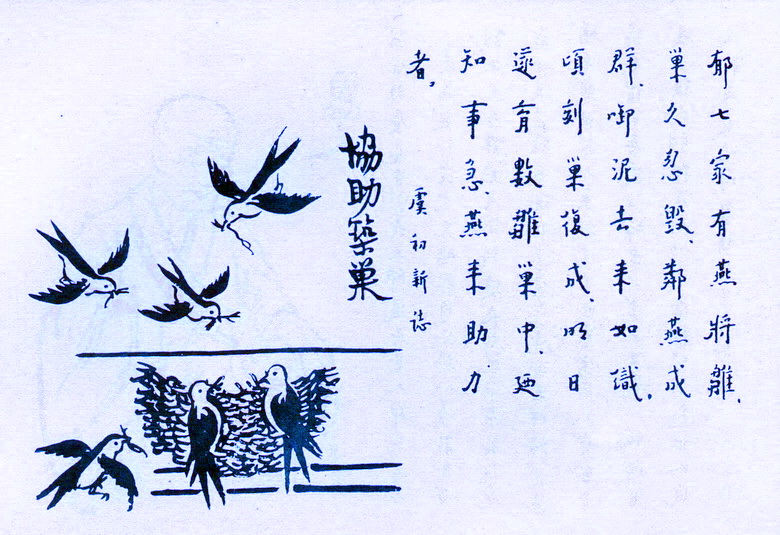 郁七家有燕將雛、
巢久忽毀、鄰燕成
群、啣泥去來如織。
頃刻巢復成、明日
遂育數雛巢中、廼
知事急、燕來助力
者。
虞初新誌
協助築巢